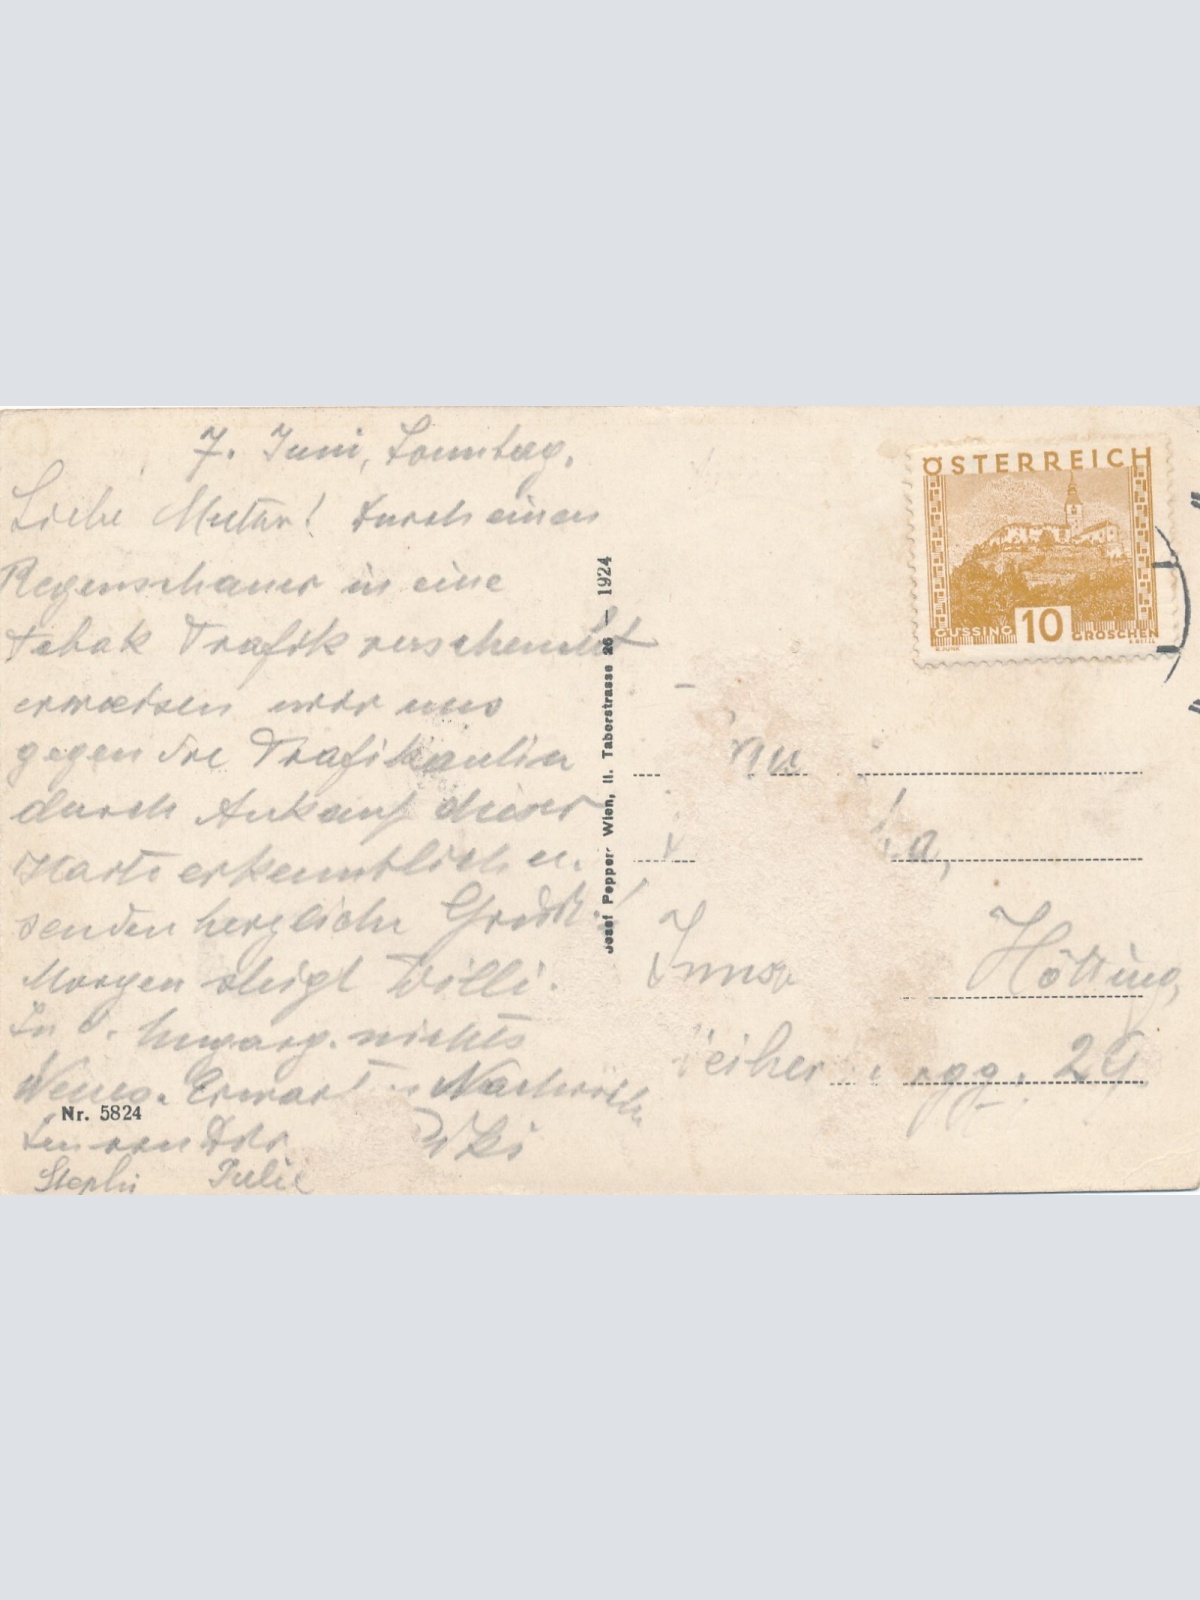 7. Juni, Sonntag.
Liebe Mutter! Durch einen
Regenschauer in eine
Tabak Trafik verscheucht
erweisen wir uns
gegen die Trafikantin
durch Ankauf dieser
Karte erkenntlich u.
senden herzliche Grüße!
Morgen steigt Willi.
In d. nichts
Neues. Erwarten Nachrich
ten von Dir.
Stephi Julie
Nr. 5824
Josef Popper Wien, II. Taborstrasse 26 — 1924
ÖSTERREICH
GÜSSING 10 GROSCHEN
Inns
Hötting,
eiher gg. 24